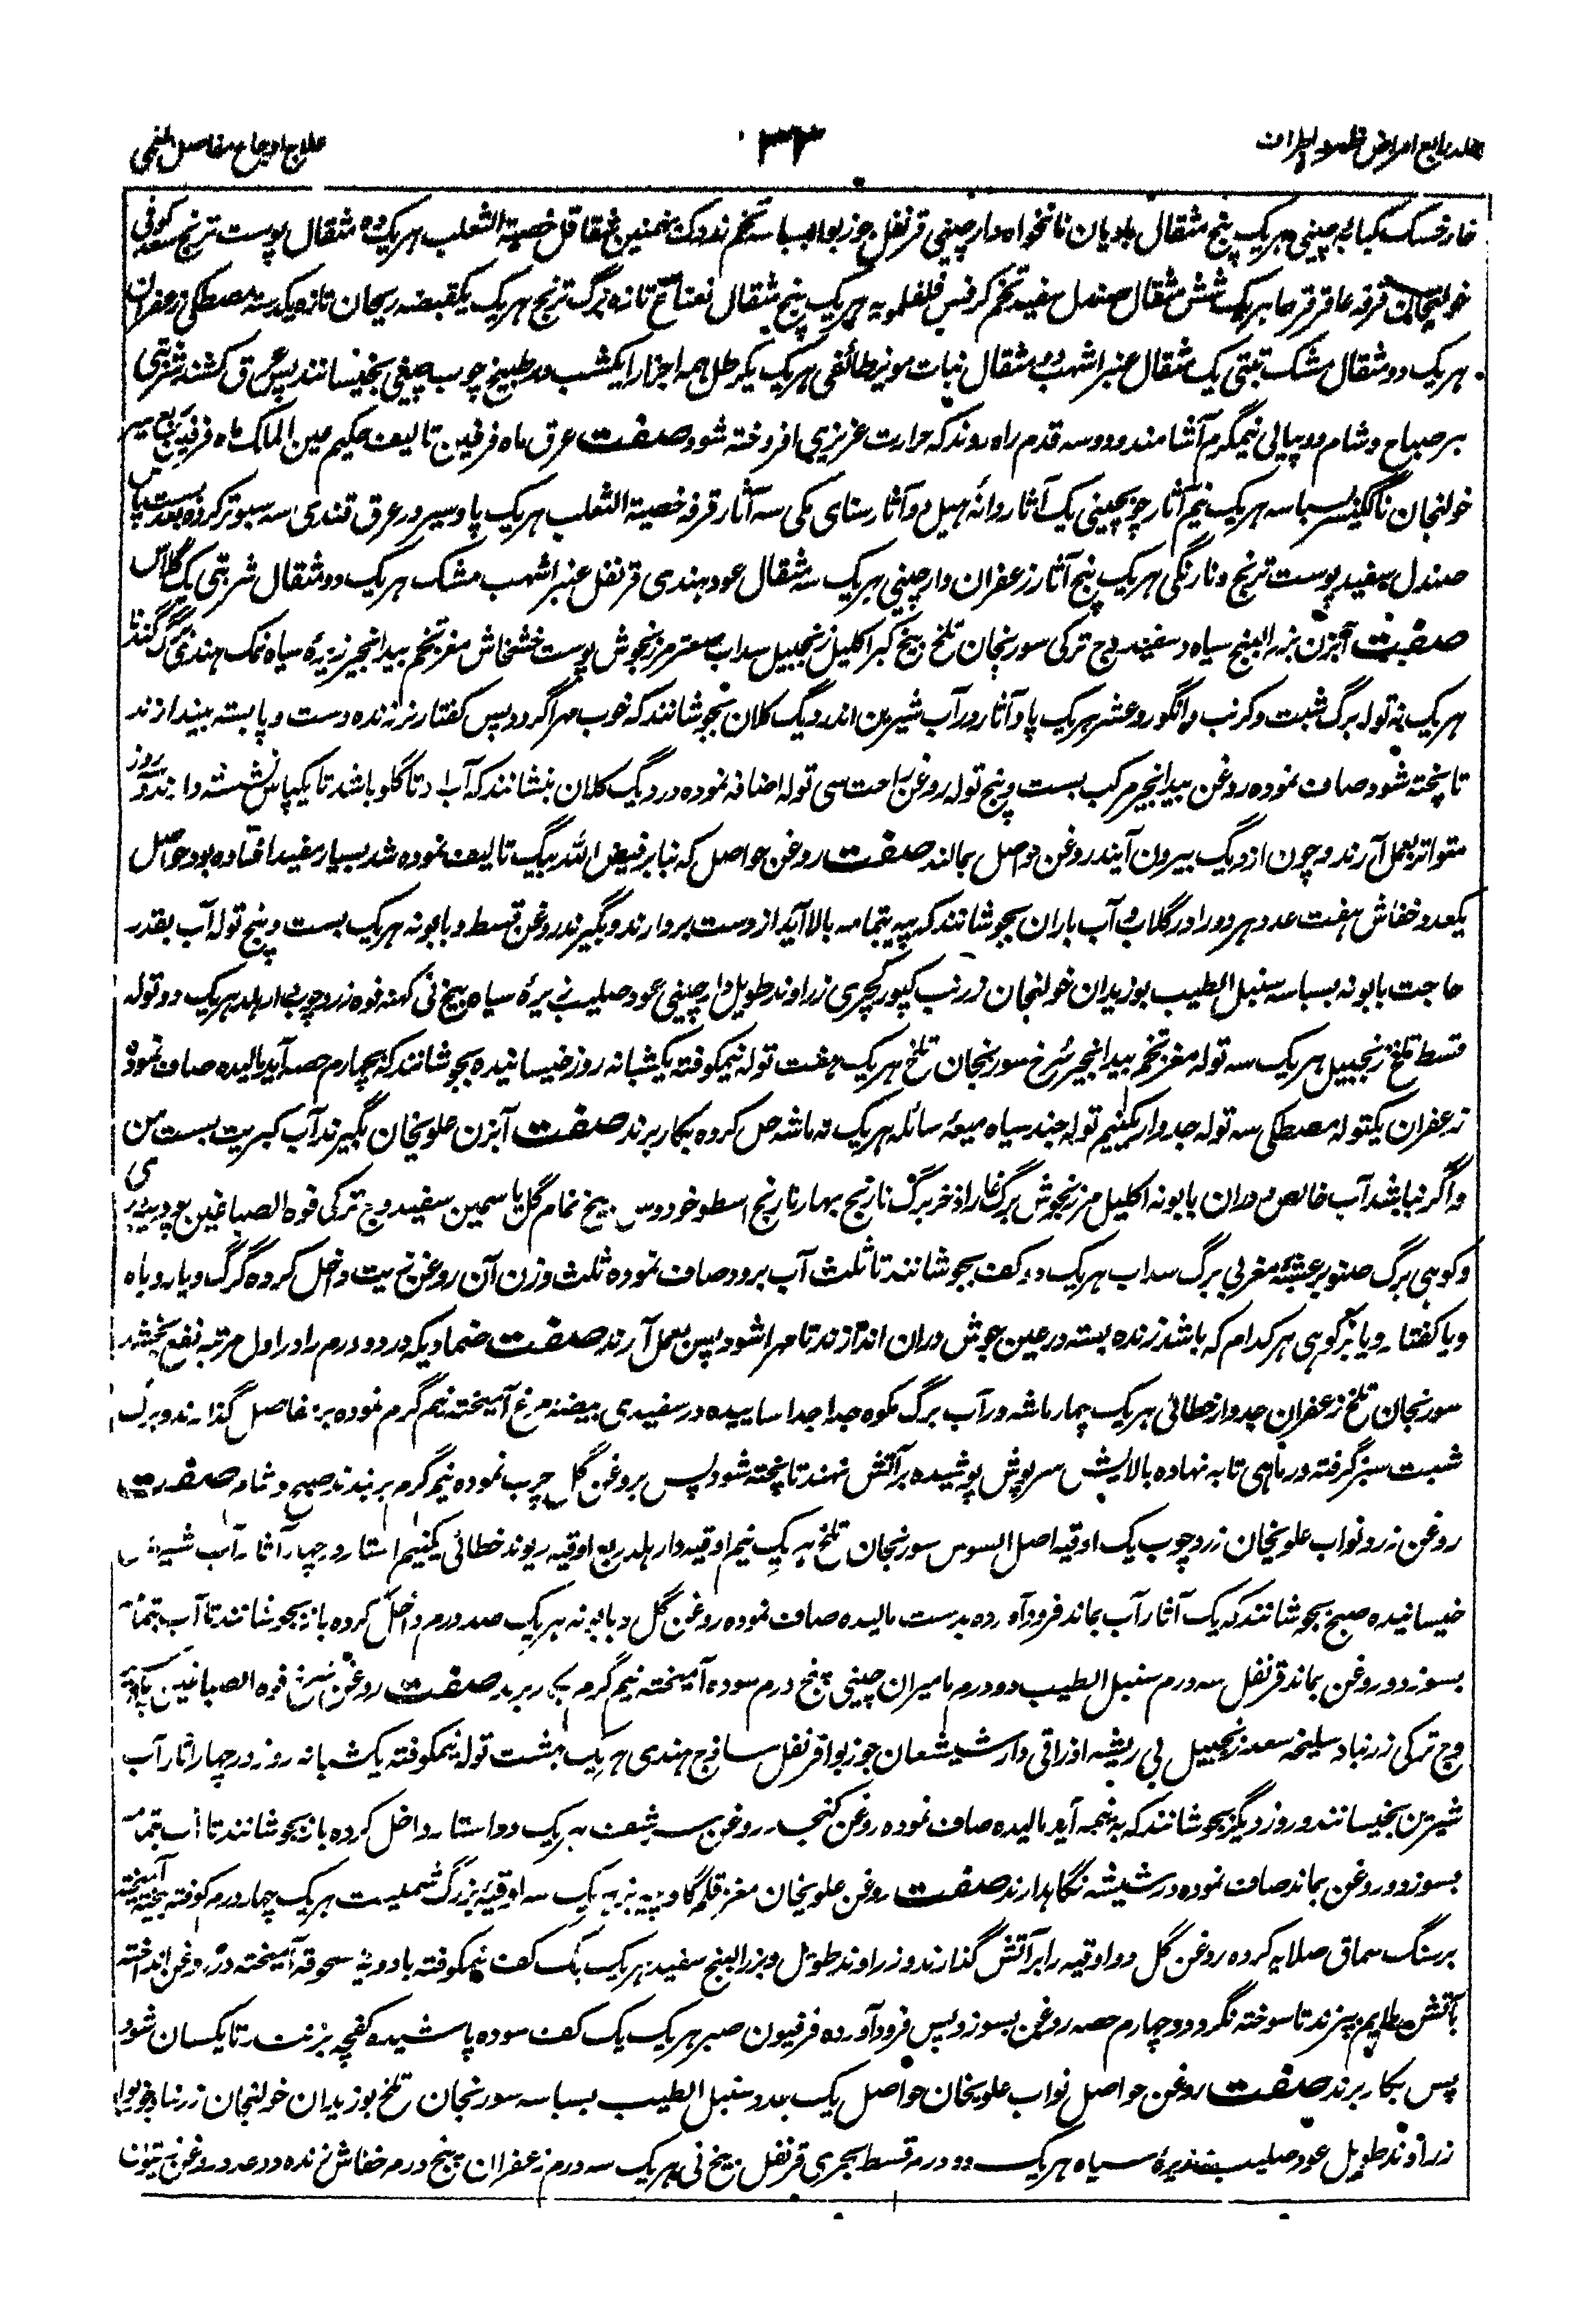 جلد رابع امراض ظهر و اطراف
۳۳
علاج اوجاع مفاصل بلغمی
خارخسک کبابه چینی هریک پنج مثقال بادیان نانخواه دارچینی قرنفل جوزبوا بسباسه تخم زردک بهمنین شقاقل خصیة الثعلب هریک ده مثقال پوست ترنج سعد کوفی
خولنجان قرفه عاقرقرحا هریک شش مثقال صندل سفید تخم کرفس فلفلمویه هریک پنج مثقال نعناع تازه برگ ترنج هریک یکقبضه ریحان تازه یکدسته مصطکی زعفران
هریک دو مثقال مشک تبتی یک مثقال عنبر اشهب دو مثقال نبات مویز طائفی هریک یکرطل همه اجزا را یکشب در طبیخ چوب چینی بخیسانند پس عرق کشند شربتی
هر صباح و شام دو پیالی نیمگرم آشامند و دو سه قدم راه روند که حرارت غریزی افروخته شود صفت عرق ماه فرفین تالیف حکیم عین الملک ماه فرفین ربع سیر
خولنجان ناگکیسر بسباسه هریک نیم آثار چوبچینی یک آثار دانه هیل دو آثار سنای مکی سه آثار قرفه خصیة الثعلب هریک پاو سیر در عرق قندی سه سبو تر کرده بعد بست پاس
صندل سفید پوست ترنج و نارنگی هریک پنج آثار زعفران دارچینی هریک سه مثقال عود هندی قرنفل عنبر اشهب مشک هریک دو مثقال شربتی یک گلاس
صفت آبزن بزر البنج سیاه و سفید وج ترکی سورنجان تلخ بیخ کبر اکلیل زنجبیل سداب صعتر مرزنجوش پوست خشخاش مغز تخم بیدانجیر زیرهٔ سیاه نمک هندی
هریک نه توله برگ شبت و کرنب و انگور و عشر هریک پاو آثار در آب شیرین اندر دیگ کلان بجوشانند که خوب مهرا گردد پس کفتار نر زنده دست و پا بسته بیندازند
تا پخته شود صاف نموده روغن بیدانجیر مرکب بست و پنج توله روغن راحت سی توله اضافه نموده در دیگ کلان بنشانند که آب او تا گلو باشد تا یکپاس نشسته دارند دو روز
متواتر بعمل آرند و چون از دیگ بیرون آیند روغن حواصل بمالند صفت روغن حواصل که بنابر فیض الله بیگ تالیف نموده شد بسیار مفید افتاده بود حواصل
یکعدد خفاش هفت عدد هر دو را در گلاب و آب باران بجوشانند که پیه بتمامه بالا آید از دست بردارند و بگیرند روغن قسط و بابونه هریک بست و پنج توله آب بقدر
حاجت بابونه بسباسه سنبل الطیب بوزیدان خولنجان زرنب کپور کچری زراوند طویل دارچینی عود صلیب زیرهٔ سیاه بیخ نی کهنه فوه زردچوب دارهلد هریک دو توله
قسط تلخ زنجبیل هریک سه توله مغز تخم بیدانجیر سرخ سورنجان تلخ هریک هفت توله نیمکوفته یکشبانه روز خیسانیده بجوشانند که بچهارم حصه آید مالیده صاف نموده
زعفران یکتوله مصطکی سه توله جدوار یکنیم توله جند سیاه میعه سائله هریک نه ماشه حل کرده بکار برند صفت آبزن علویخان بگیرند آب کبریت بست من
و اگر نباشد آب خالص و دران بابونه اکلیل مرزنجوش برگ غار اذخر برگ نارنج بهار نارنج اسطوخودوس بیخ نمام گل یاسمین سفید وج ترکی فوه الصباغین
و کوهی برگ صنوبر عشبهٔ مغربی برگ سداب هریک دو کف بجوشانند تا ثلث آب برود صاف نموده ثلث وزن آن روغن زیت داخل کرده گرگ و یا روباه
و یا کفتار و یا بز کوهی هر کدام که باشد زنده بسته در عین جوش دران اندازند تا مهرا شود پس بعمل آرند صفت ضمادیکه درد و ورم را در اول مرتبه نفع بخشد
سورنجان تلخ زعفران جدوار خطائی هریک چهار ماشه در آب برگ مکوه جدا جدا ساییده در سفیدی بیضهٔ مرغ آمیخته نیم گرم نموده بر مفاصل گذارند و برگ
شبت سبز گرفته در ماهی تابه نهاده بالایش سرپوش پوشیده بر آتش نهند تا پخته شود پس بروغن گل چرب نموده نیم گرم بر بندند صبح و شام صفت
روغن زرد نواب علویخان زردچوب یک اوقیه اصل السوس سورنجان تلخ هریک نیم اوقیه دارهلد ربع اوقیه ریوند خطائی یکنیم استار در چهار آثار آب شیرین
خیسانیده صبح بجوشانند که یک آثار آب بماند فرود آورده بدست مالیده صاف نموده روغن گل و بابونه هریک صد درم داخل کرده باز بجوشانند تا آب بتمامه
بسوزد و روغن بماند قرنفل سه درم سنبل الطیب دو درم مامیران چینی پنج درم سوده آمیخته نیم گرم بکار برند صفت روغن سرخ فوه الصباغین
وج ترکی زرنباد سلیخه سعد زنجبیل بی ریشه اذراقی دارشیشعان جوزبوا قرنفل ساذج هندی هریک هشت توله نیمکوفته یک شبانه روز در چهار آثار آب
شیرین بخیسانند و روز دیگر بجوشانند که به نیمه آید مالیده صاف نموده روغن کنجد روغن شبت هریک دو استار داخل کرده باز بجوشانند تا آب بتمامه
بسوزد و روغن بماند صاف نموده در شیشه نگاهدارند صفت روغن علویخان مغز قلم گاو پیه بز هریک سه اوقیه بزرگ شملیت هریک چهار درم کوفته بیخته آمیخته
بر سنگ سماق صلایه کرده روغن گل دو اوقیه را بر آتش گذارند و زراوند طویل و بزر البنج سفید هریک یک کف نیمکوفته با دویهٔ مسحوقه آمیخته در روغن انداخته
بآتش ملایم پزند تا سوخته نگردد و چهارم حصه روغن بسوزد پس فرود آورده فرفیون صبر هریک یک کف سوده پاشیده کفچه بزنند تا یکسان شود
پس بکار برند صفت روغن حواصل نواب علویخان حواصل یک عدد سنبل الطیب بسباسه سورنجان تلخ بوزیدان خولنجان زرنباد جوزبوا
زراوند طویل عود صلیب زیرهٔ سیاه هریک دو درم قسط بحری قرنفل بیخ نی هریک سه درم زعفران پنج درم خفاش زنده دو عدد روغن زیتون